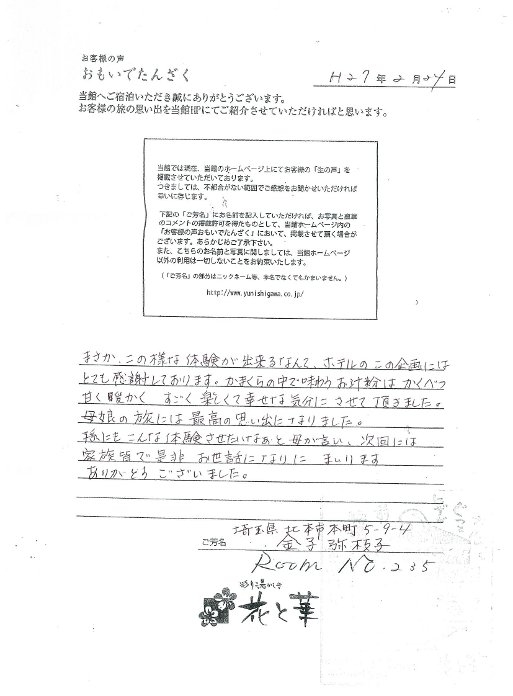 お客様の声
おもいでたんざく
H27年2月24日
当館へご宿泊いただき誠にありがとうございます。
お客様の旅の思い出を当館HPにてご紹介させていただければと思います。
当館では現在、当館のホームページ上にてお客様の「生の声」を
掲載させていただいております。
つきましては、不都合がない範囲でご感想をお聞かせいただければ
幸いに存じます。
下記の「ご芳名」にお名前を記入していただければ、お写真と直筆
のコメントの掲載許可を得たものとして、当館ホームページ内の
「お客様の声おもいでたんざく」において、掲載させて頂く場合が
ございます。あらかじめご了承下さい。
また、こちらのお名前と写真に関しましては、当館ホームページ
以外の利用は一切しないことをお約束いたします。
(「ご芳名」の部分はニックネーム等、本名でなくてもかまいません。)
http://www.yunishigawa.co.jp/
まさか、この様な体験が出来るなんて、ホテルのこの企画には
とても感謝しております。かまくらの中で味わうお汁粉はかくべつ
甘く暖かく すごく楽しくて幸せな気分にさせて頂きました。
母娘の旅には最高の思い出になりました。
孫にもこんな体験させたいなあと母が言い、次回には
家族皆で是非 お世話になりに まいります
ありがとう ございました。
埼玉県北本市本町5-9-4
ご芳名 金子 弥枝子
Room No.235
花と華